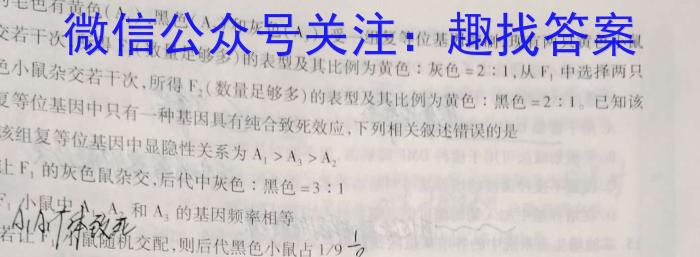 微信公众号关注:趣找答案
的毛色有黄色(A 黑色 和灰色
交若干次 数量足够多)的表型及其比例为黄色:灰色=2:1,从F₁中选择两只
色小鼠杂交若干次,所得F₂(数量足够多)的表型及其比例为黄色:黑色=2:1。已知该
复等位基因中只有一种基因具有纯合致死效应,下列相关叙述错误的是
该组复等位基因中显隐性关系为A₁>A₃>A₂
让F₁的灰色鼠杂交,后代中灰色:黑色=3:1
F₁小鼠中 和A₃的基因频率相等
若让F₁ 鼠随机交配,则后代黑色小鼠占1/9